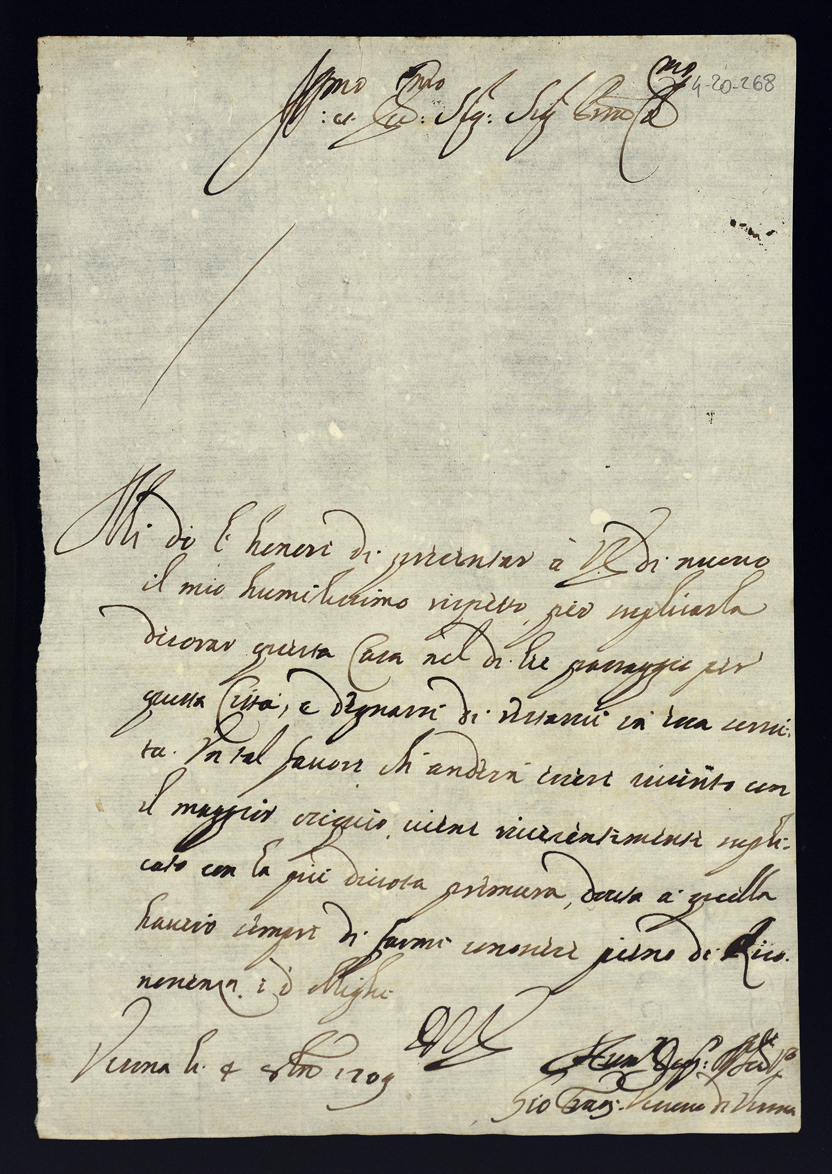 Ill.mo e Rev.mo Sig.r Sig.r P.rone Col.mo
4-20-268
Mi dò l'honore di presentar à V.S. di nuovo
il mio humilissimo rispetto, per supplicarla
decorar questa Casa nel di Lei passaggio per
questa Città, e degnarsi di restarvi in essa servi-
ta. Un tal favore ch'anderà essere ricevuto con
il maggior ossequio, viene riverentemente suppli-
cato con la più divota premura, e a quella
haverò sempre di farmi conoscere pieno di Rico-
noscenza, e d'oblighi
Verona li 4 8bre 1709
D V S
Hum.o Dev.o
Gio Fran.co Vescovo di Verona